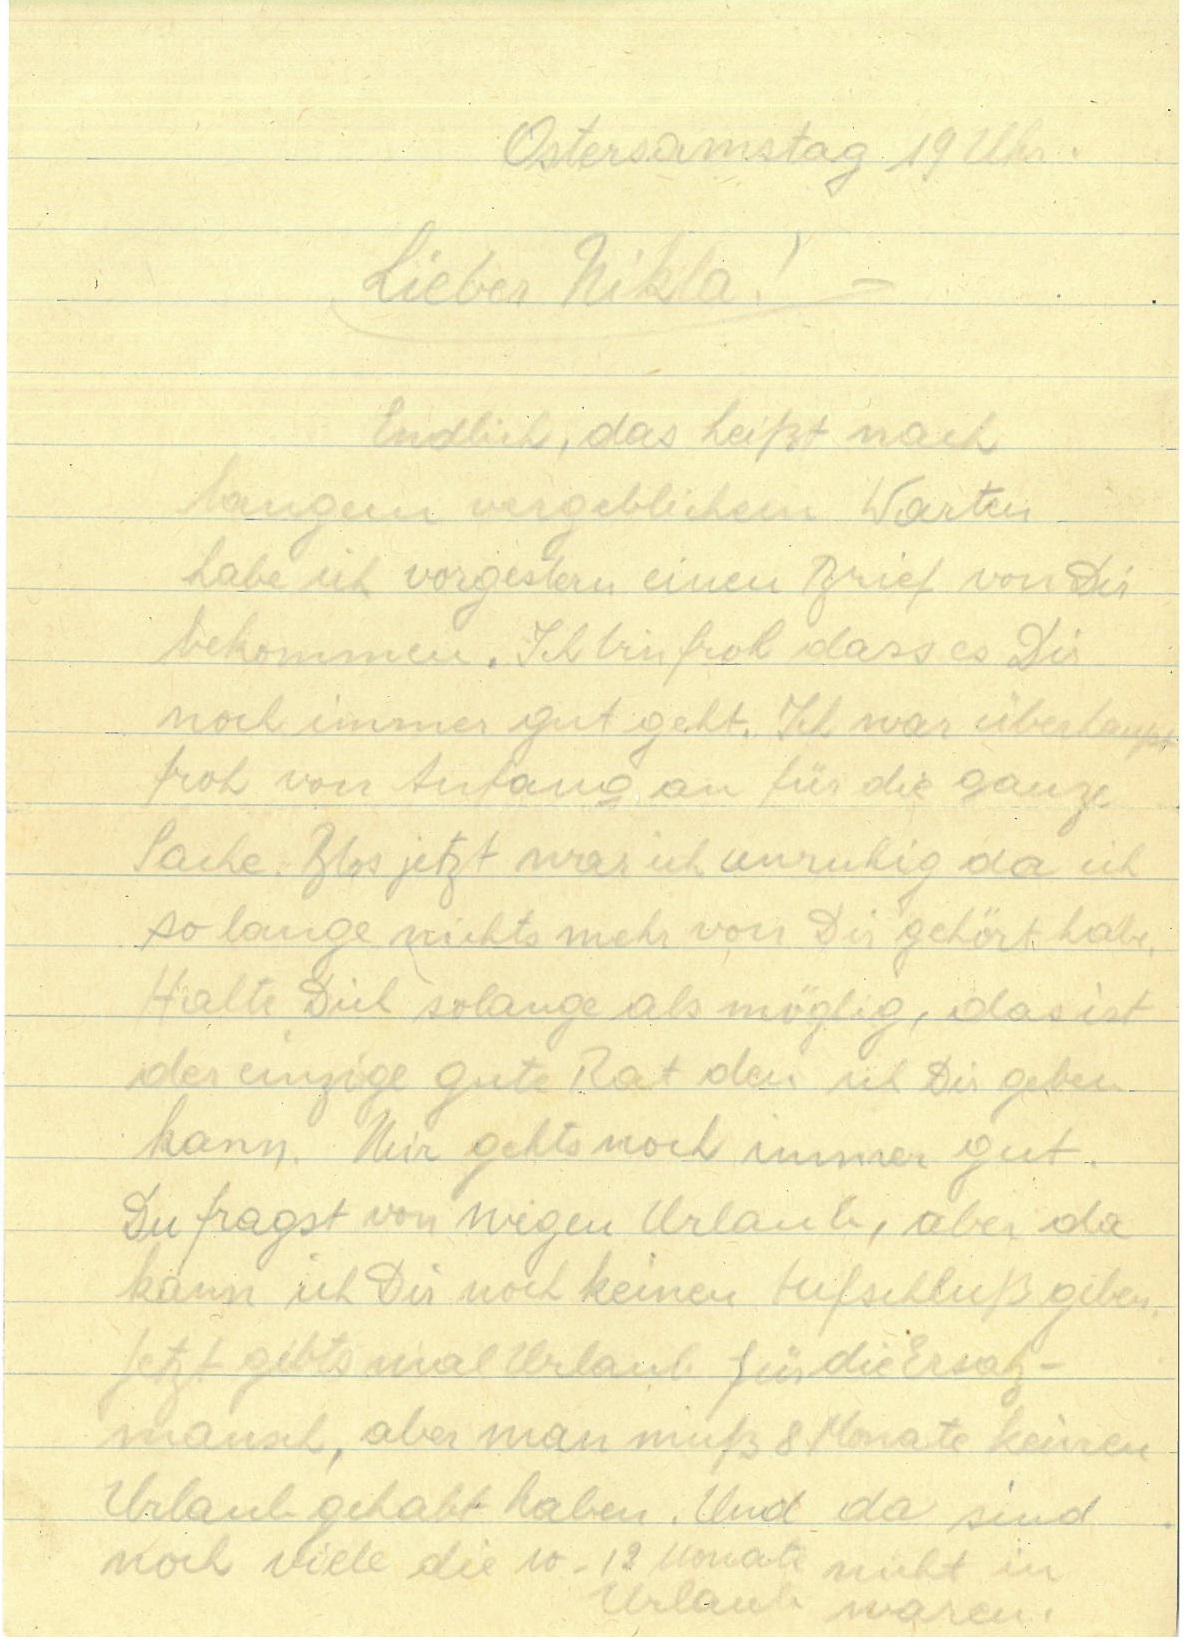 Ostersamstag 19 Uhr.
Lieber Nikla! –
Endlich, das heißt nach
langem vergeblichem Warten
habe ich vorgestern einen Brief von Dir
bekommen. Ich bin froh dass es Dir
noch immer gut geht. Ich war überhaupt
froh von Anfang an für die ganze
Sache. Blos jetzt war ich unruhig da ich
so lange nichts mehr von Dir gehört habe.
Halte Dich solange als möglig, das ist
der einzige gute Rat den ich Dir geben
kann. Mir gehts noch immer gut.
Du fragst von wegen Urlaub, aber da
kann ich Dir noch keinen Aufschluß geben.
Jetzt gibts mal Urlaub für die Ersatz-
mansch, aber man muß 8 Monate keinen
Urlaub gehabt haben. Und da sind
noch viele die 10 - 12 Monate nicht in
Urlaub waren.